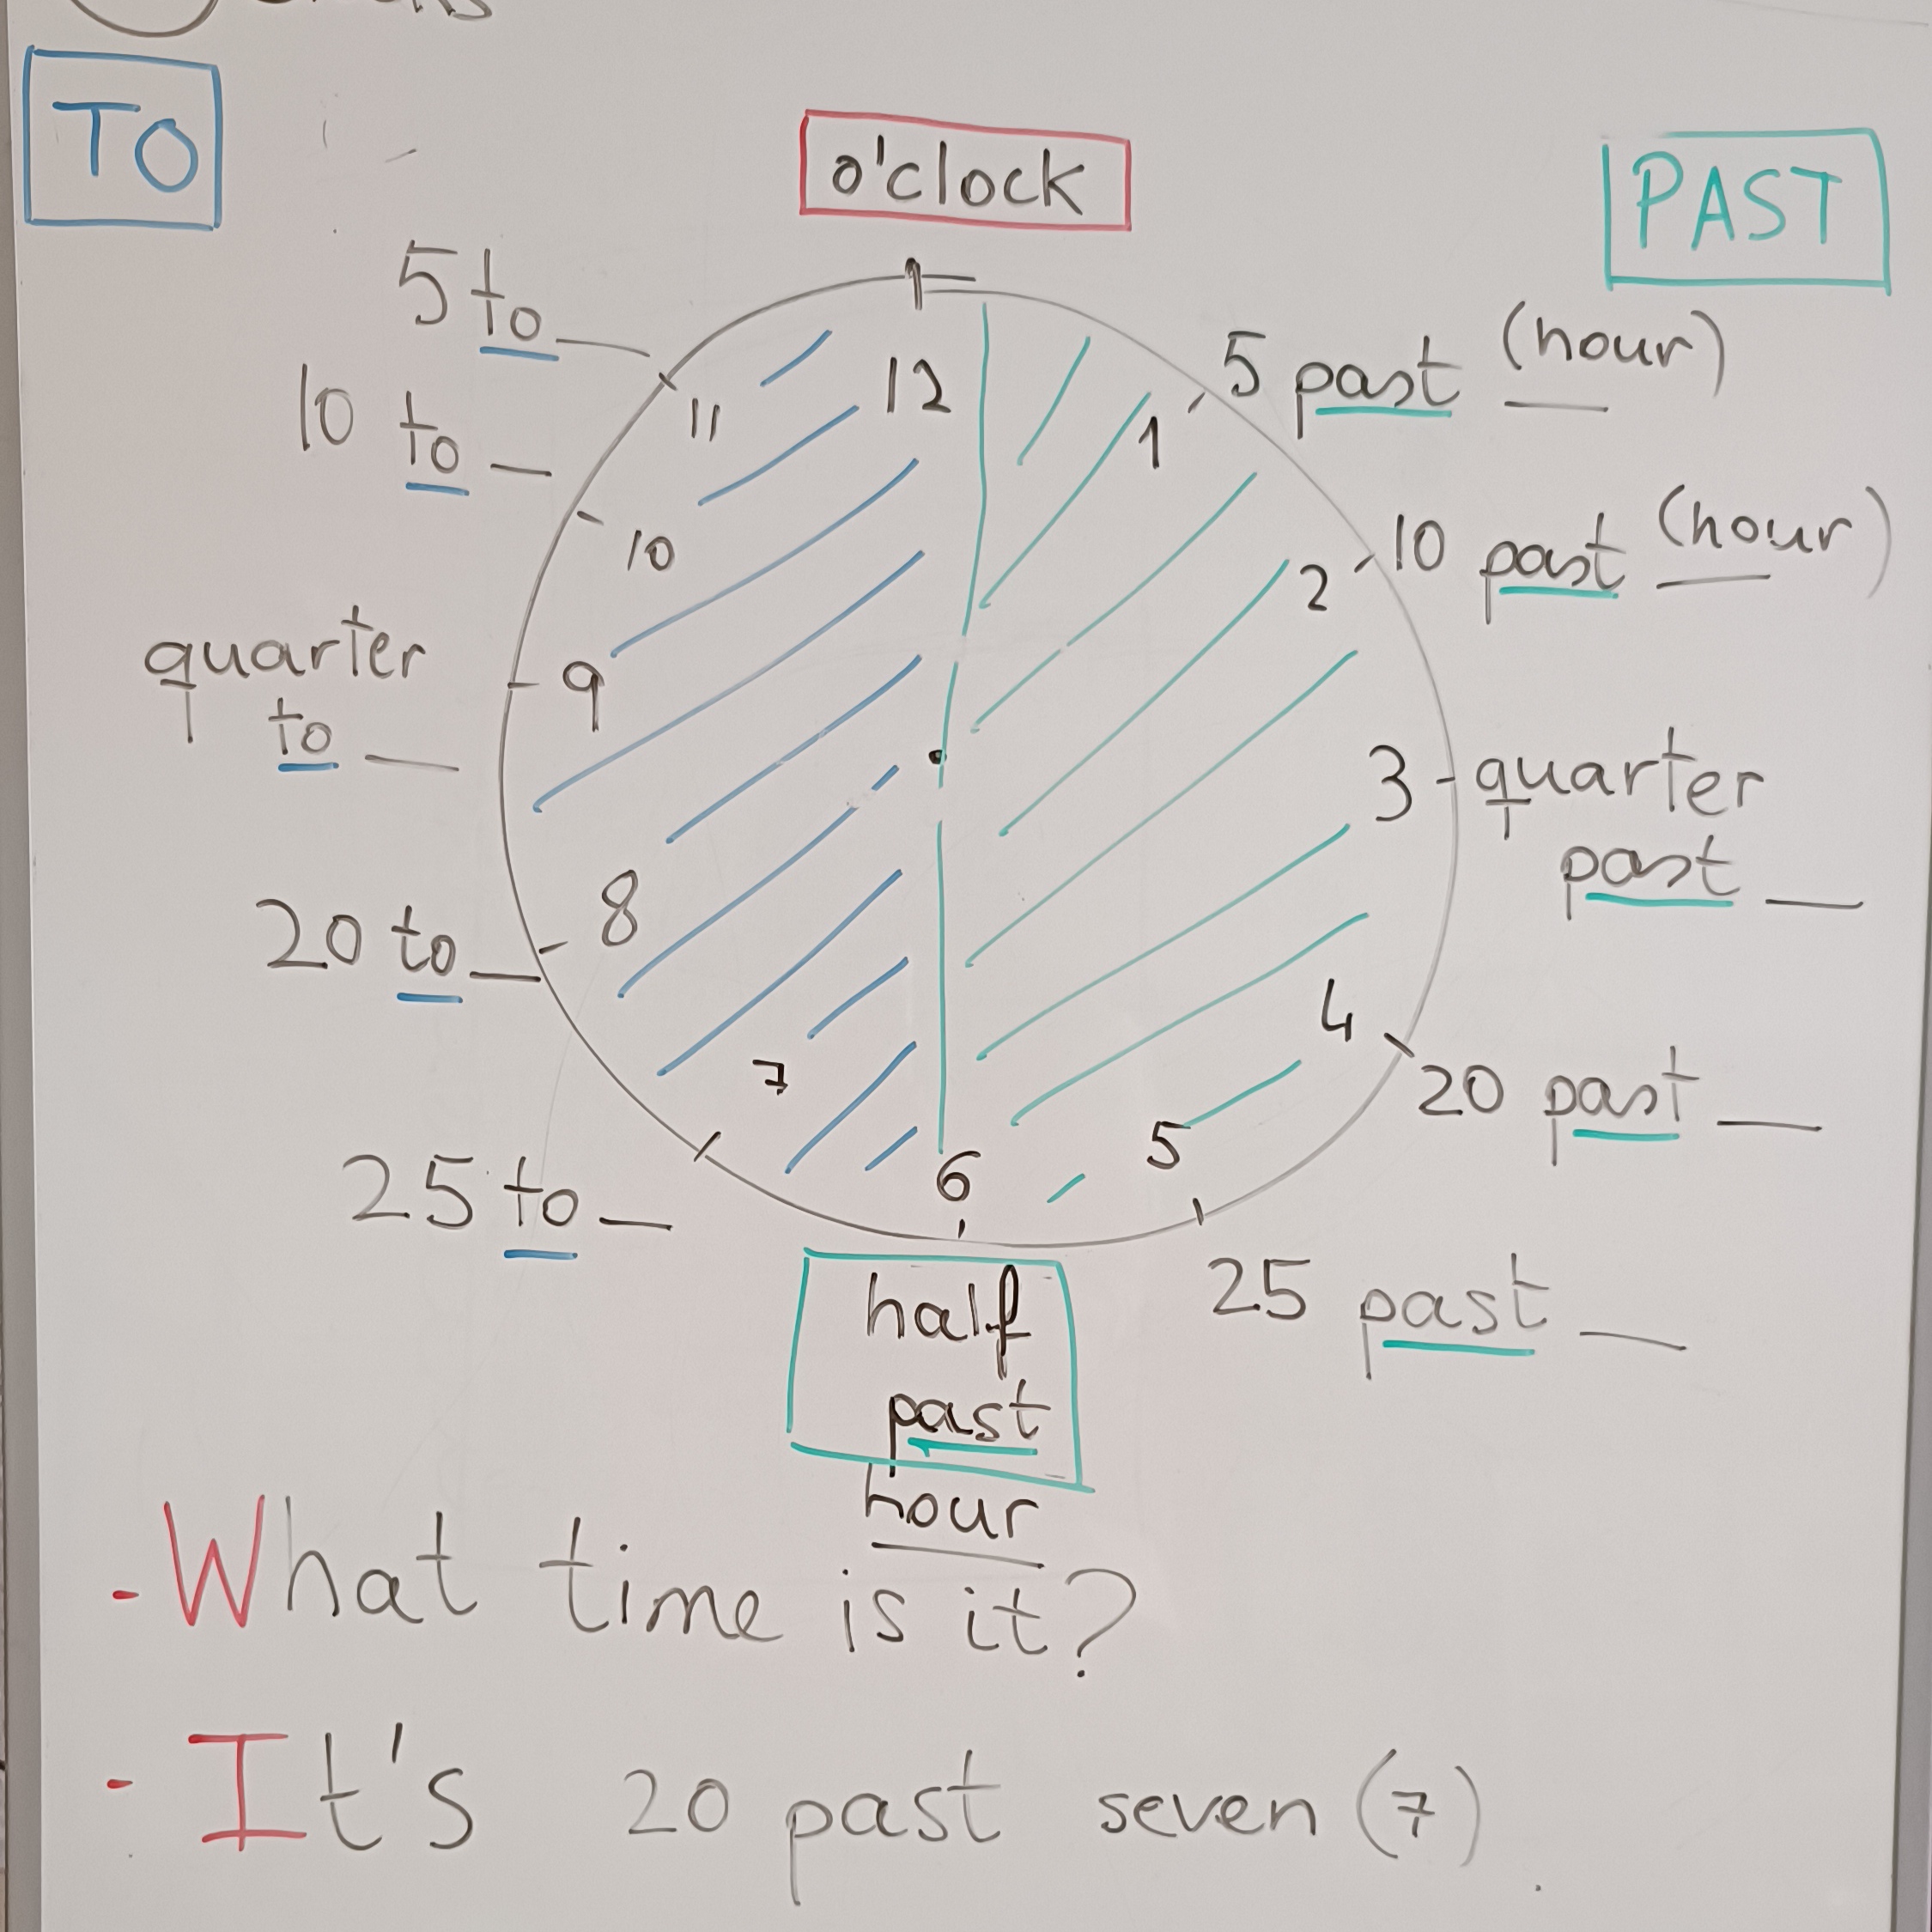 TO
o'clock
PAST
5 to
10 to
quarter
to
20 to
25 to
12
1
2
3
4
5
6
7
8
9
10
11
5 past (hour)
10 past (hour)
quarter
past
20 past
25 past
half
past
hour
- What time is it?
- It's 20 past seven (7)